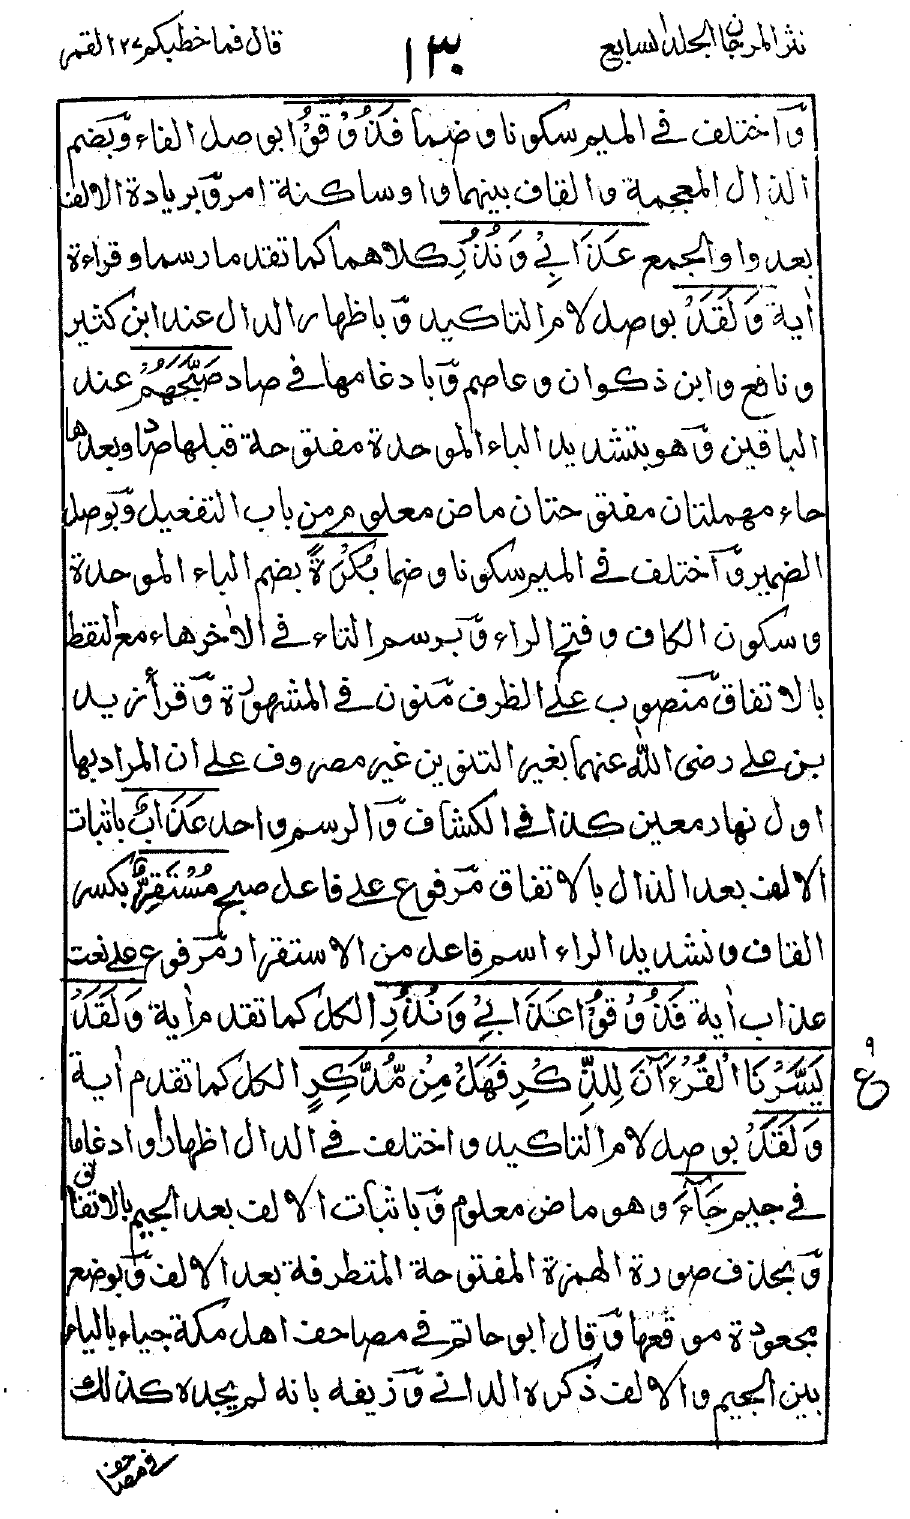 نثر المرجان المجلد السابع
١٣٠
قال فما خطبكم ٢٧ القمر
وَّاختلف في الميم سكونا وضما فَذُوْقُوْا بوصل الفاء وَّبضم
الذال المعجمة والقاف بينهما واو ساكنة امر وَّبزيادة الالف
بعد واو الجمع عَذَابِيْ وَنُذُرِ كلاهما كما تقدما رسما وقراءة
اٰية وَلَقَدْ بوصل لام التاكيد وَّباظهار الدال عند ابن كثير
ونافع وابن ذكوان وعاصم وَّبادغامها في صاد صَبَّحَهُمْ عند
الباقين وَّهو بتشديد الباء الموحدة مفتوحة قبلها صاد وبعدها
حاء مهملتان مفتوحتان ماض معلوم من باب التفعيل وَّبوصل
الضمير وَّاختلف في الميم سكونا وضما بُكْرَةً بضم الباء الموحدة
وسكون الكاف وفتح الراء وَّبرسم التاء في الاٰخر هاء مع النقط
بالاتفاق مّنصوب على الظرف مّنون في المشهورة وَّقرأ زيد
بن علي رضى الله عنهما بغير التنوين غير مصروف على ان المراد بها
اول نهار معين كذا في الكشاف وَّالرسم واحد عَذَابٌ باثبات
الالف بعد الذال بالاتفاق مّرفوع على فاعل صبح مُّسْتَقِرٌّ بكسر
القاف وتشديد الراء اسم فاعل من الاستقرار مّرفوع على نعت
عذاب اٰية فَذُوْقُوْا عَذَابِيْ وَنُذُرِ الكل كما تقدم اٰية وَلَقَدْ
يَسَّرْنَا الْقُرْءَانَ لِلذِّكْرِ فَهَلْ مِنْ مُّدَّكِرٍ الكل كما تقدم اٰية
وَلَقَدْ بوصل لام التاكيد واختلف في الدال اظهارا وادغاما
في جيم جَآءَ وهو ماض معلوم وَّباثبات الالف بعد الجيم بالاتفاق
وَّبحذف صورة الهمزة المفتوحة المتطرفة بعد الالف وَّبوضع
مجعودة موقعها وَّقال ابو حاتم في مصاحف اهل مكة جياء بالياء
بين الجيم والالف ذكره الداني وَّزيفه بانه لم يجده كذلك
في مصاحف
٩
ع